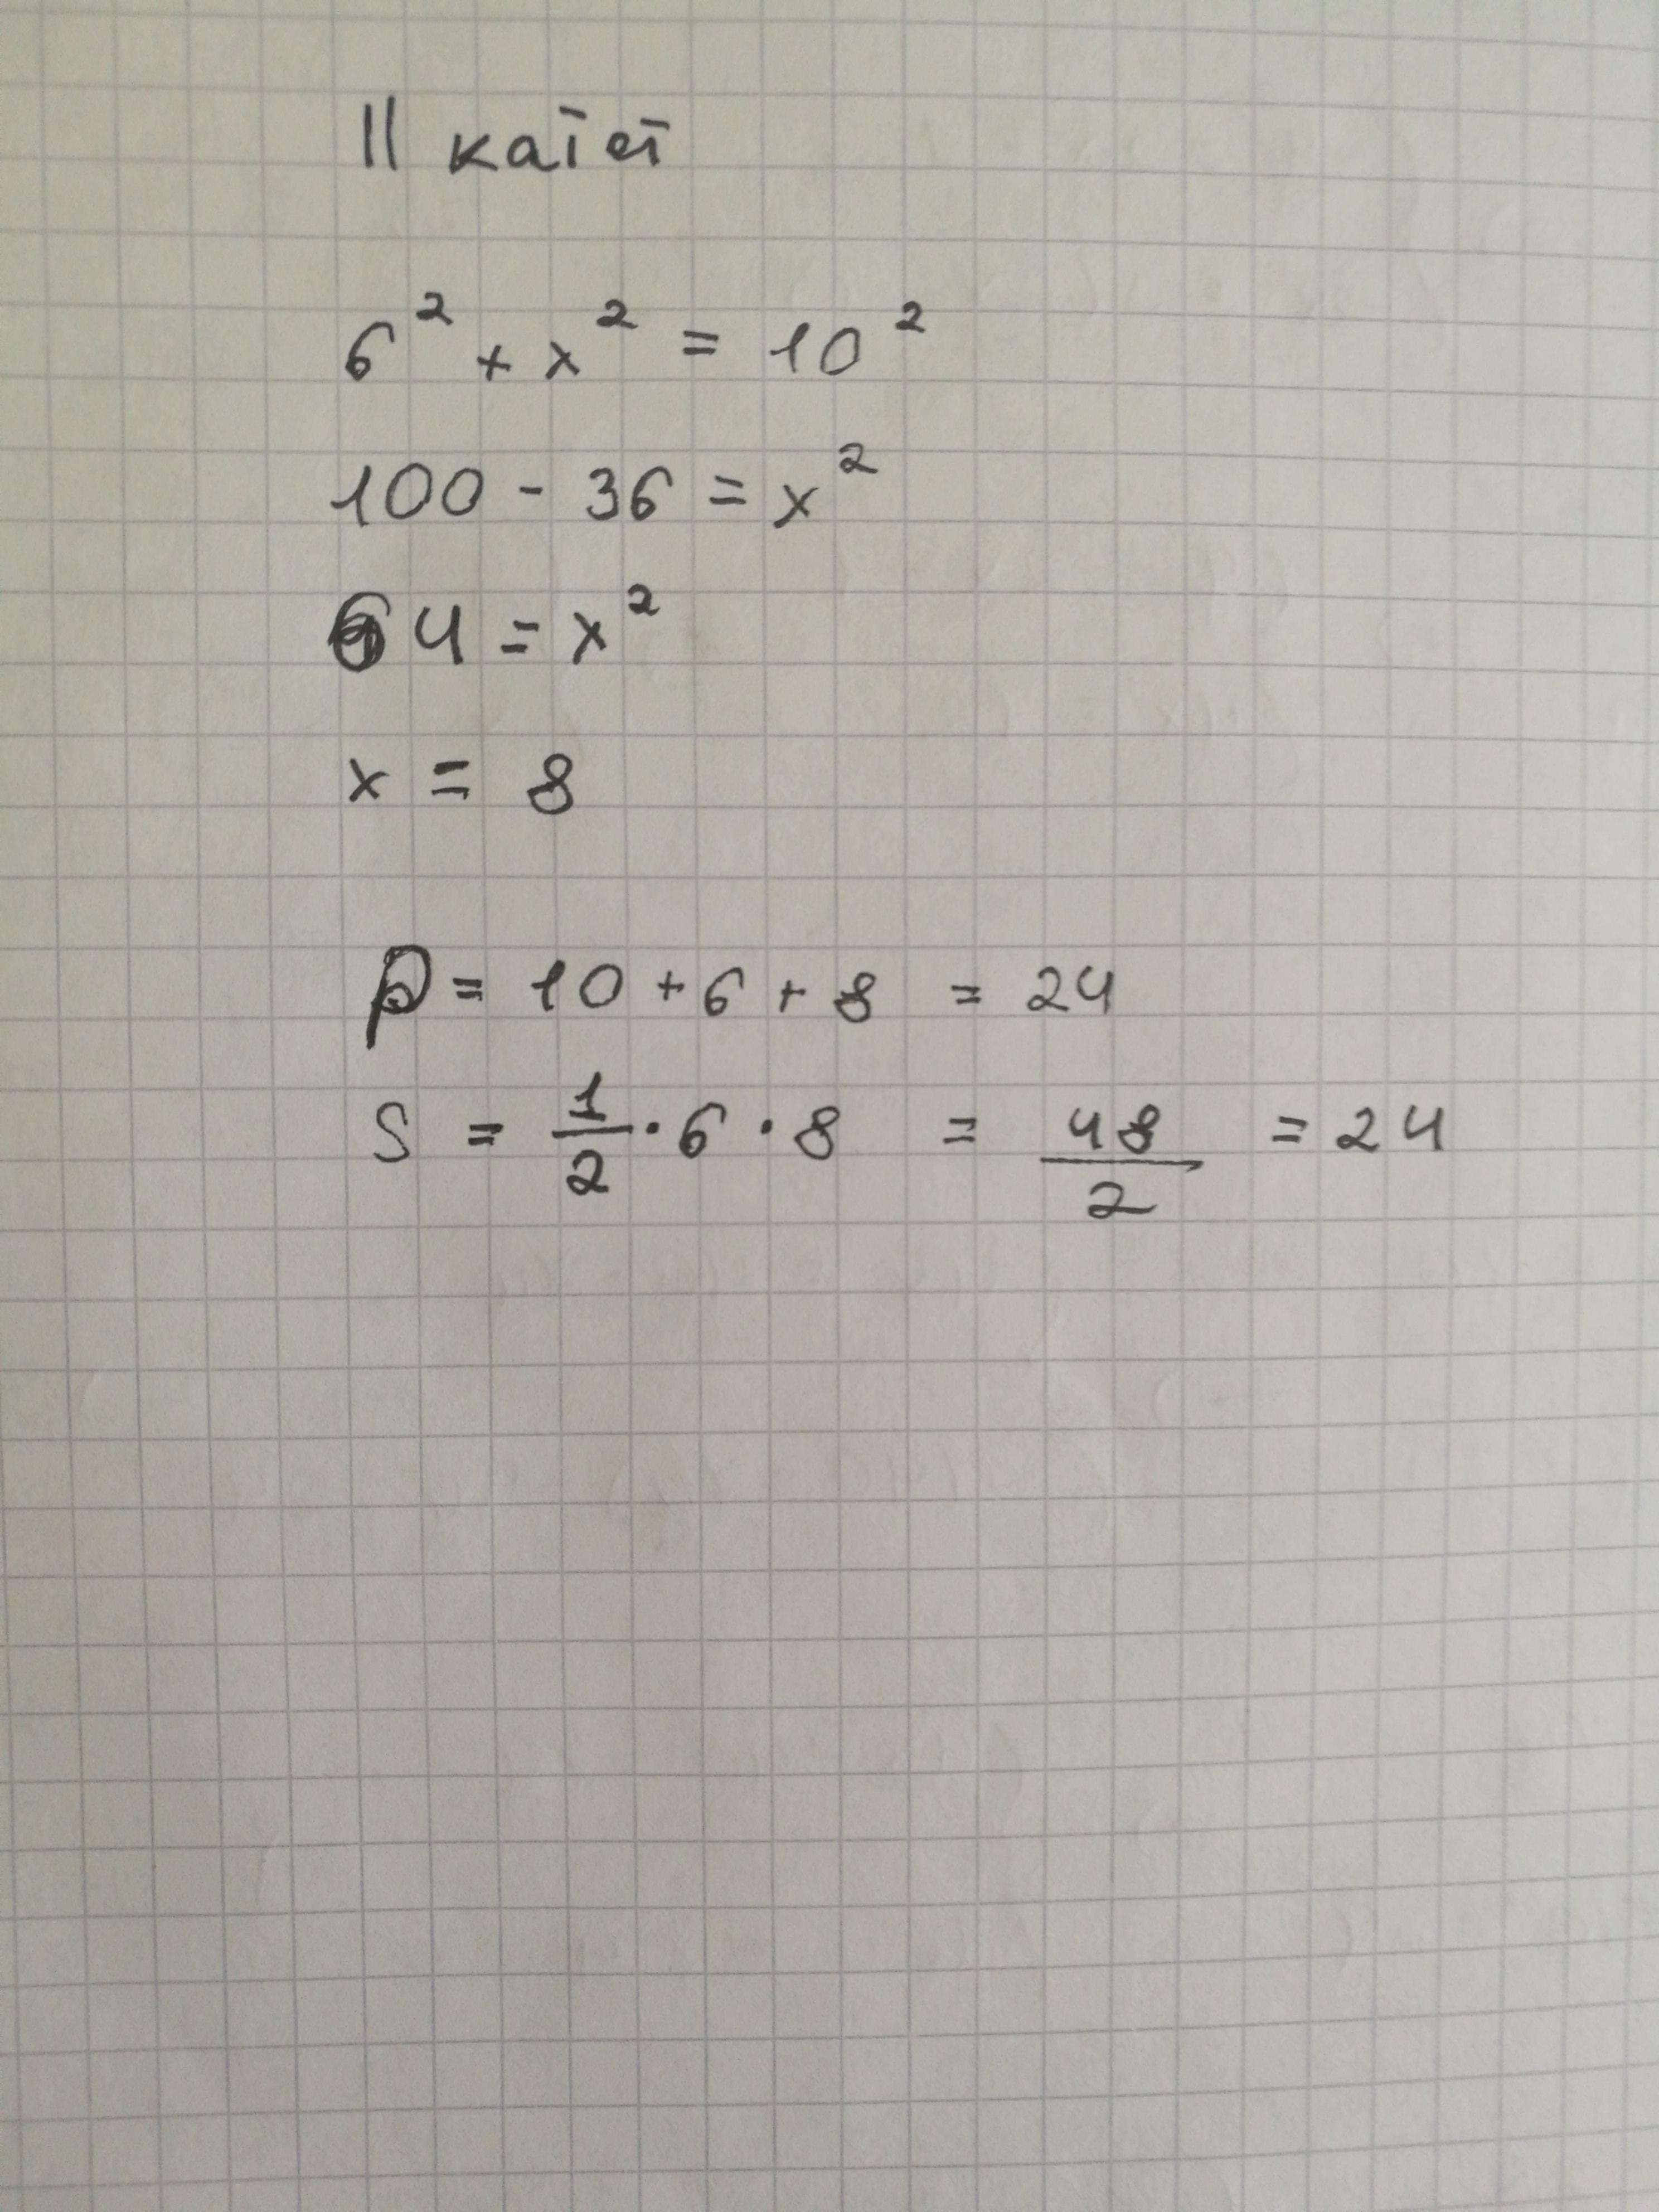 II катет
6² + x² = 10²
100 - 36 = x²
64 = x²
x = 8
P = 10 + 6 + 8 = 24
S = 1/2 · 6 · 8 = 48/2 = 24